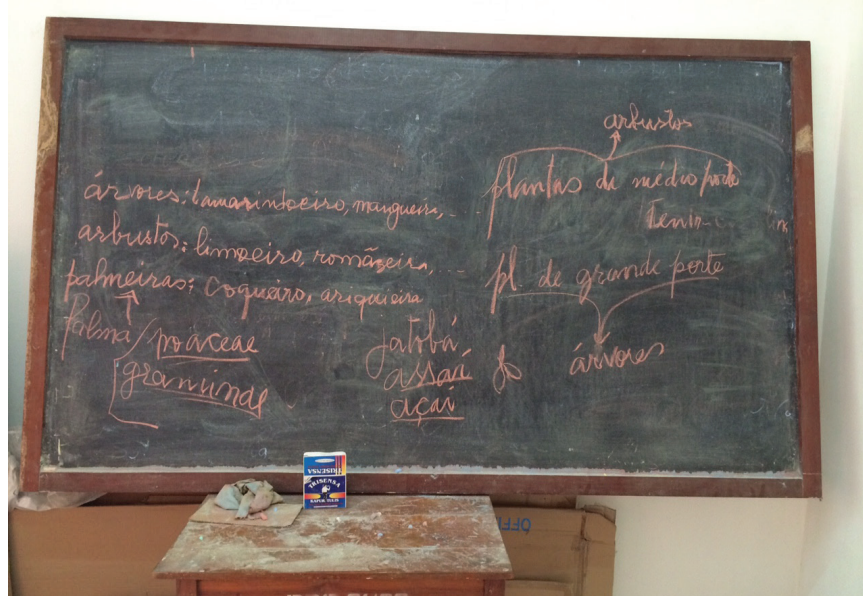 árvores: tamarinheiro, mangueira, ...
arbustos: limoeiro, romãzeira, ...
palmeiras: coqueiro, ariqueira
palma / poaceae
graminae
jatobá
assaí
açaí
arbustos
plantas de médio porte
pl. de grande porte
árvores
TRISENSA
TRISENSA
KAPUR TULIS
OFF